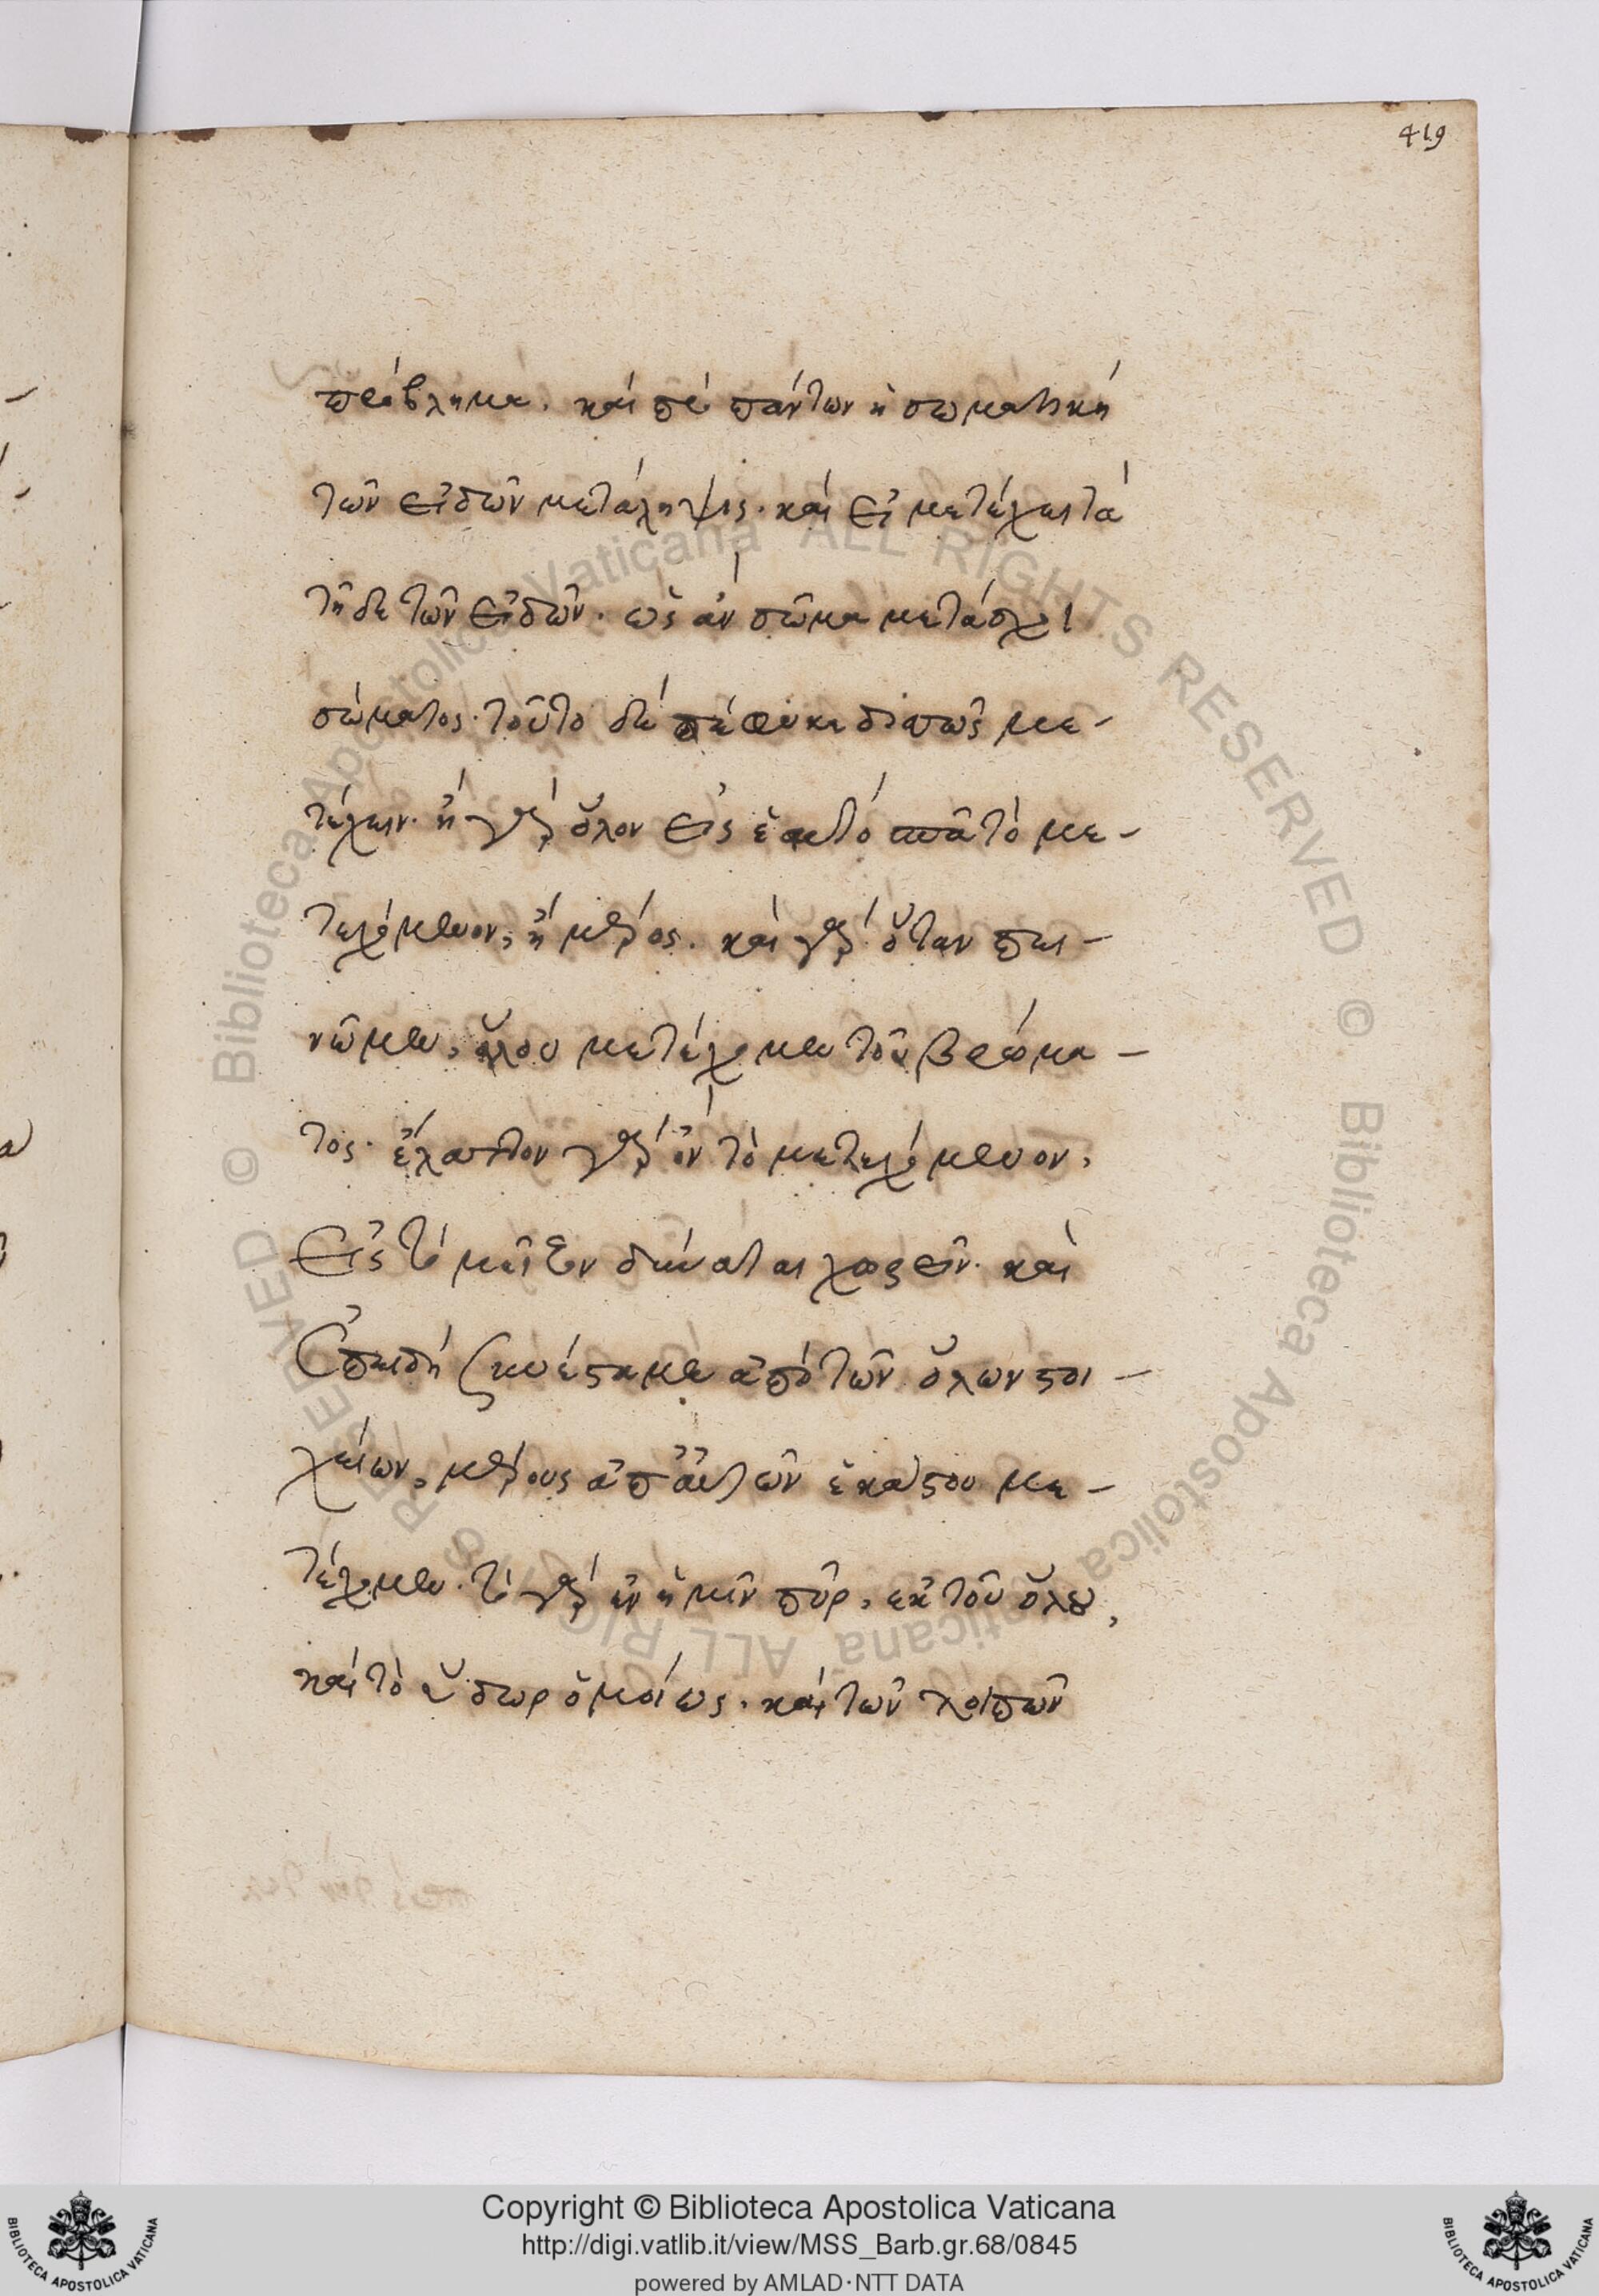 419
πρόβλημα. καὶ πρὸ πάντων ἡ σωματικὴ
τῶν εἰδῶν μετάληψις. καὶ εἰ μετέχει τὰ
τῇδε τῶν εἰδῶν. ὡς ἂν σῶμα μετάσχοι
σώματος. τοῦτο δὲ πέφυκε διττῶς με-
τέχειν. ἢ γὰρ ὅλον εἰς ἑαυτὸ σπᾶ τὸ με-
τεχόμενον, ἢ μέρος. καὶ γὰρ ὅταν πει-
νῶμεν, ὅλου μετέχομεν τοῦ βρώμα-
τος. ἔλαττον γὰρ ὂν τὸ μετεχόμενον,
εἰς τὸ μεῖζον δύναται χωρεῖν. καὶ
ἐπειδὴ συνέσταμεν ἀπὸ τῶν ὅλων στοι-
χείων, μέρους ἀπ' αὐτῶν ἑκάστου με-
τέχομεν. τὸ γὰρ ἐν ἡμῖν πῦρ, ἐκ τοῦ ὅλου,
καὶ τὸ ὕδωρ ὁμοίως. καὶ τῶν λοιπῶν
Copyright © Biblioteca Apostolica Vaticana
http://digi.vatlib.it/view/MSS_Barb.gr.68/0845
powered by AMLAD·NTT DATA
BIBLIOTECA APOSTOLICA VATICANA
BIBLIOTECA APOSTOLICA VATICANA
© Biblioteca Apostolica Vaticana ALL RIGHTS RESERVED
© Biblioteca Apostolica Vaticana ALL RIGHTS RESERVED